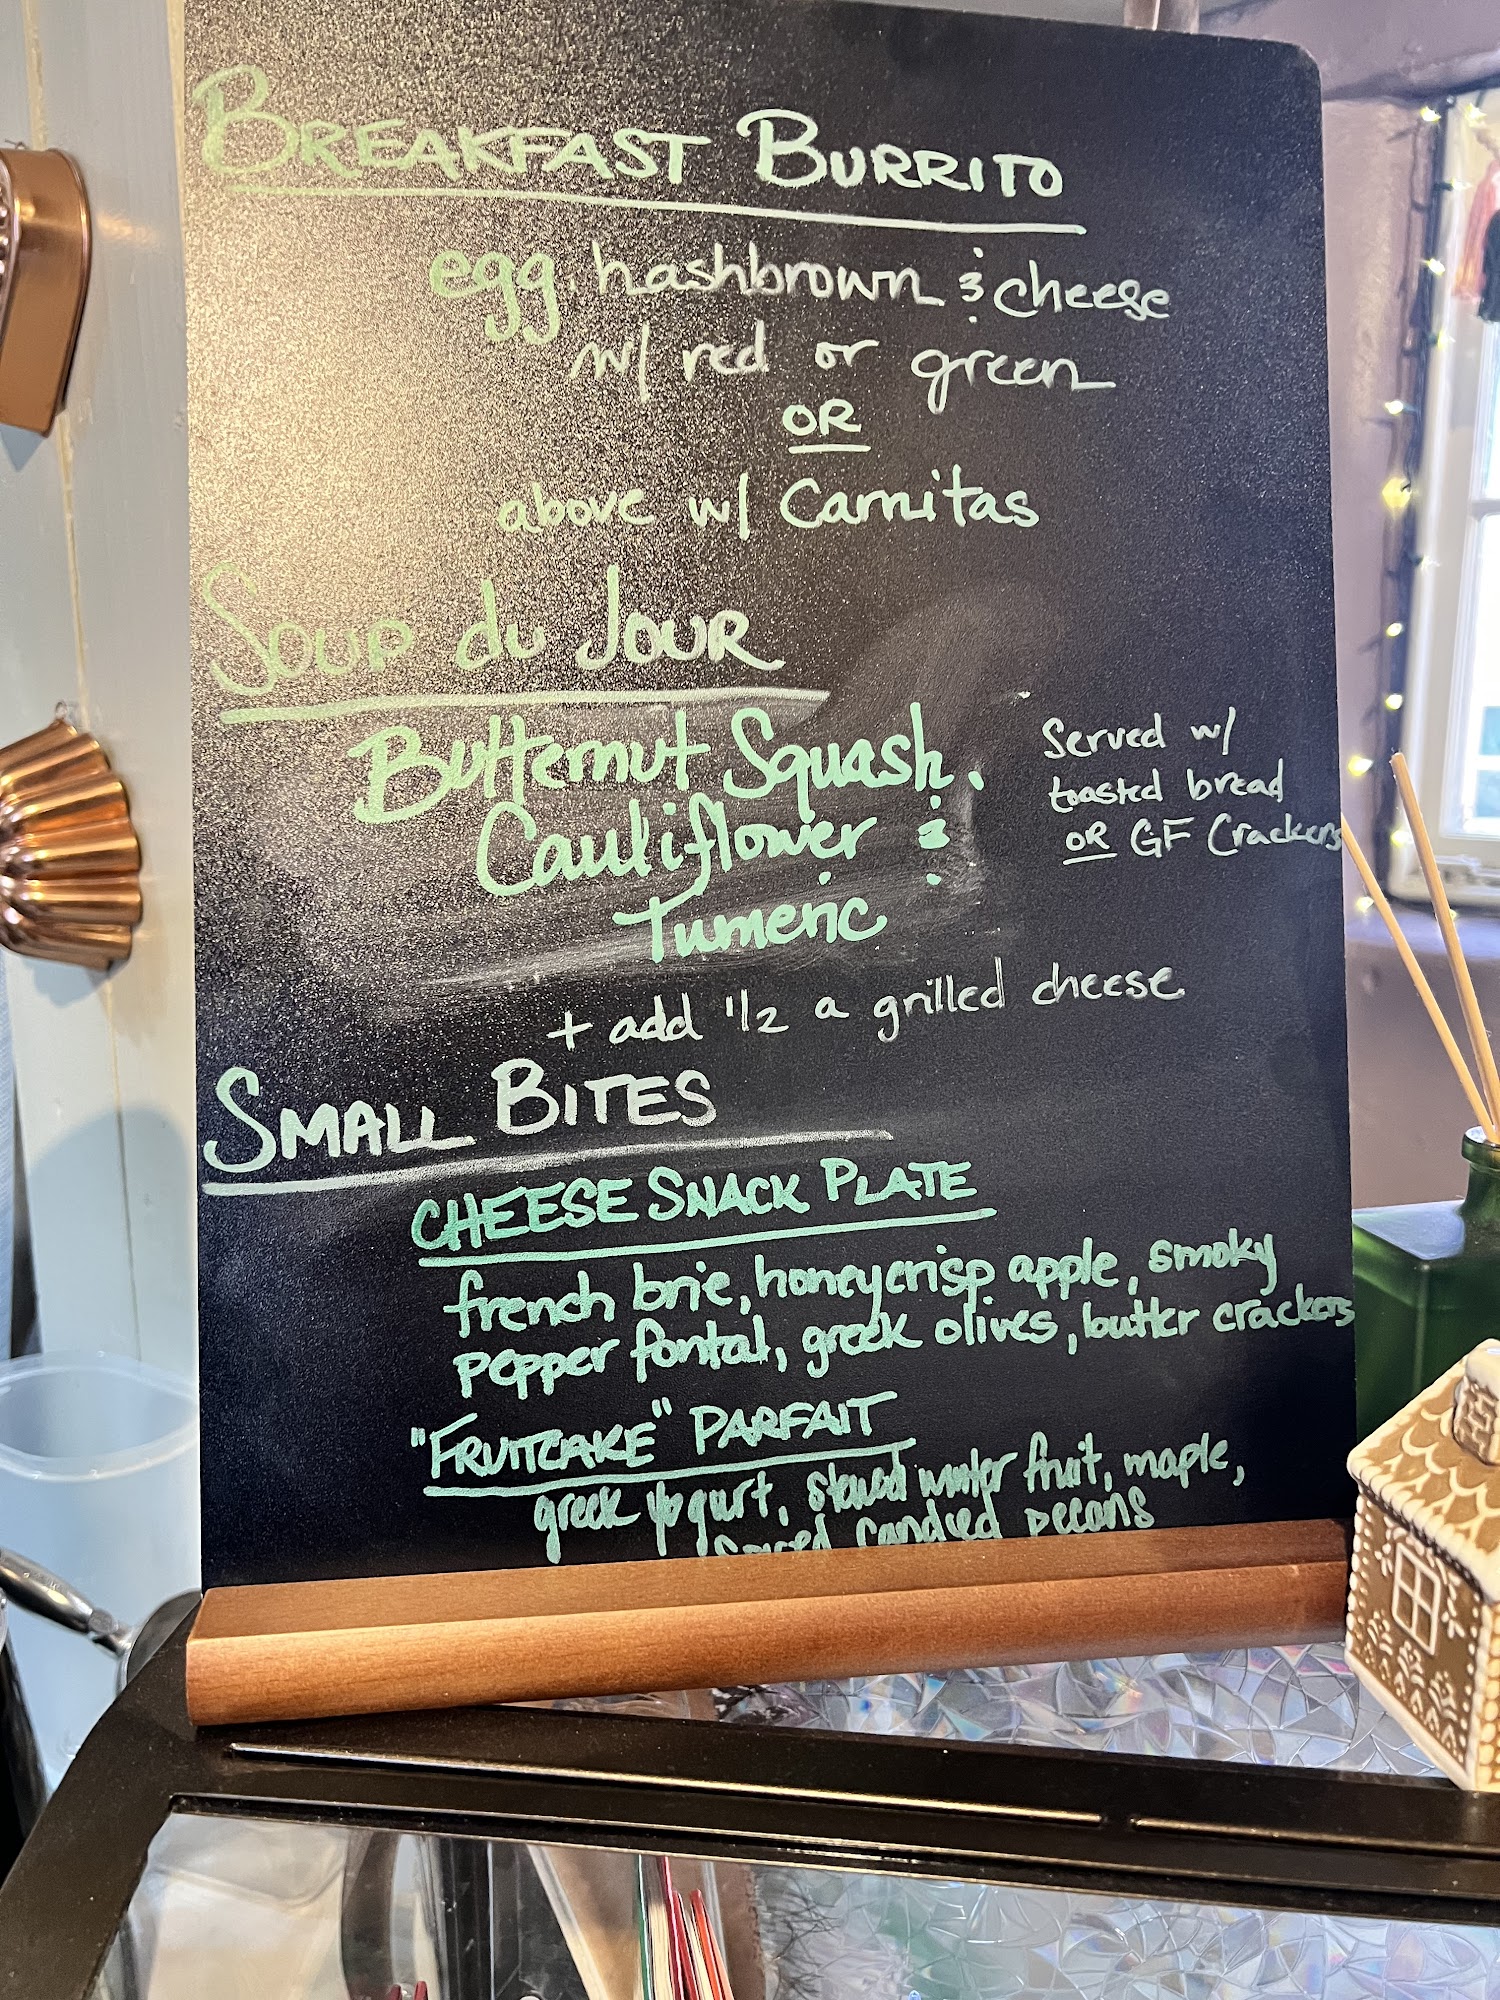 BREAKFAST BURRITO
egg, hashbrown & cheese
w/ red or green
OR
above w/ Carnitas
SOUP du JOUR
Butternut Squash,
Cauliflower &
Tumeric
Served w/
toasted bread
OR GF Crackers
+ add 1/2 a grilled cheese
SMALL BITES
CHEESE SNACK PLATE
french brie, honeycrisp apple, smoky
pepper fontal, greek olives, butter crackers
"FRUITCAKE" PARFAIT
greek yogurt, stewed winter fruit, maple,
candied pecans